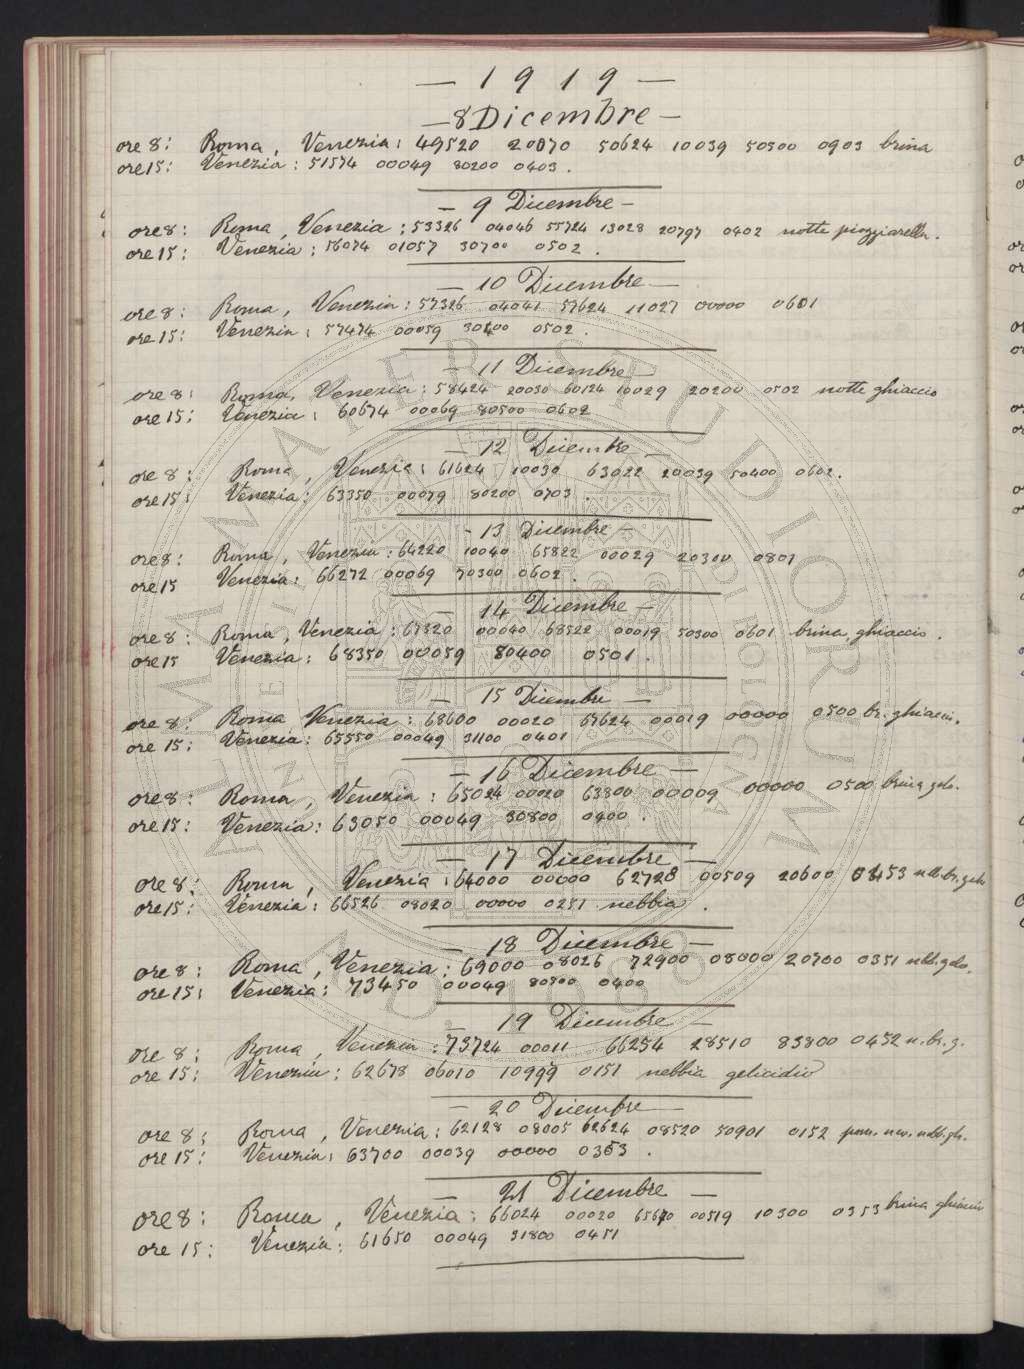 — 1919 —
— 8 Dicembre —
ore 8: Roma, Venezia: 49520 20070 50624 10039 50300 0903 brina
ore 15: Venezia: 51574 00049 80200 0403.
— 9 Dicembre —
ore 8: Roma, Venezia: 53326 04046 55724 13028 20797 0402 notte pioggiarella.
ore 15: Venezia: 56074 01057 30700 0502.
— 10 Dicembre —
ore 8: Roma, Venezia: 57326 04041 57624 11027 00000 0601
ore 15: Venezia: 57474 00059 30400 0502.
— 11 Dicembre —
ore 8: Roma, Venezia: 58424 20030 60124 10029 20200 0502 notte ghiaccio
ore 15: Venezia: 60674 00069 80500 0602
— 12 Dicembre —
ore 8: Roma, Venezia: 61624 10030 63022 20039 50400 0602.
ore 15: Venezia: 63350 00079 80200 0703.
— 13 Dicembre —
ore 8: Roma, Venezia: 64220 10040 65822 00029 20300 0801
ore 15 Venezia: 66272 00069 70300 0602.
— 14 Dicembre —
ore 8: Roma, Venezia: 67320 00040 68522 00019 50300 0601 brina, ghiaccio.
ore 15 Venezia: 68350 00059 80400 0501.
— 15 Dicembre —
ore 8: Roma Venezia: 68600 00020 67624 00019 00000 0500 br. ghiaccio.
ore 15: Venezia: 65550 00049 31100 0401
— 16 Dicembre —
ore 8: Roma, Venezia: 65024 00020 63800 00009 00000 0500 brina gelo.
ore 15: Venezia: 63050 00049 30800 0400.
— 17 Dicembre —
ore 8: Roma, Venezia: 64000 00000 62728 00509 20600 0453
ore 15: Venezia: 66526 08020 00000 0251 nebbia.
— 18 Dicembre —
ore 8: Roma, Venezia: 69000 08026 72900 08000 20700 0351 nbb. gelo.
ore 15: Venezia: 73450 00049 80800 0400
— 19 Dicembre —
ore 8: Roma, Venezia: 73724 00011 66254 28510 83800 0452 n. br. g.
ore 15: Venezia: 62678 06010 10999 0151 nebbia gelicidio
— 20 Dicembre —
ore 8: Roma, Venezia: 62128 08005 62624 08520 50901 0152
ore 15: Venezia: 63700 00039 00000 0353.
— 21 Dicembre —
ore 8: Roma, Venezia: 66024 00020 65670 00519 10300 0353 brina ghiaccio
ore 15: Venezia: 61650 00049 31800 0451